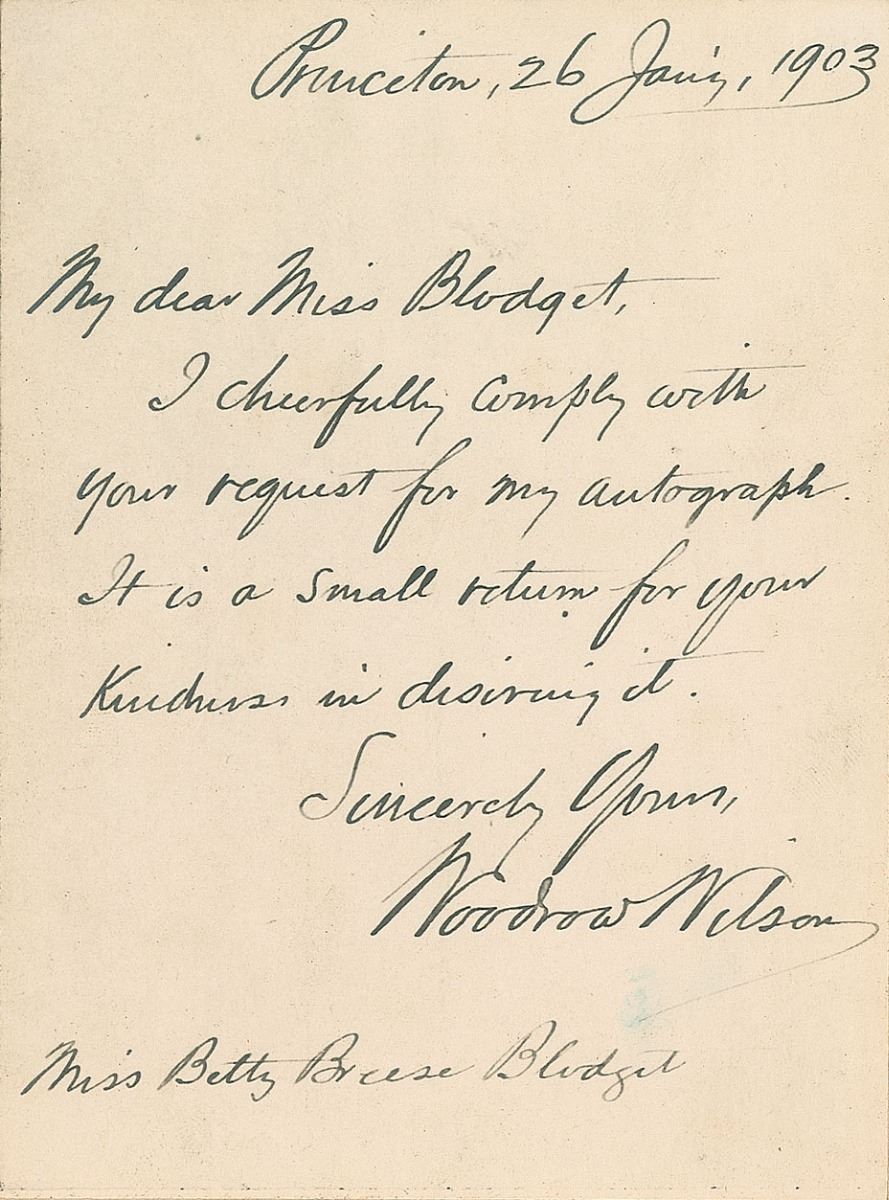 Princeton, 26 Jan'y, 1903
My dear Miss Blodget,
I cheerfully comply with
your request for my autograph.
It is a small return for your
kindness in desiring it.
Sincerely Yours,
Woodrow Wilson
Miss Betty Breese Blodget